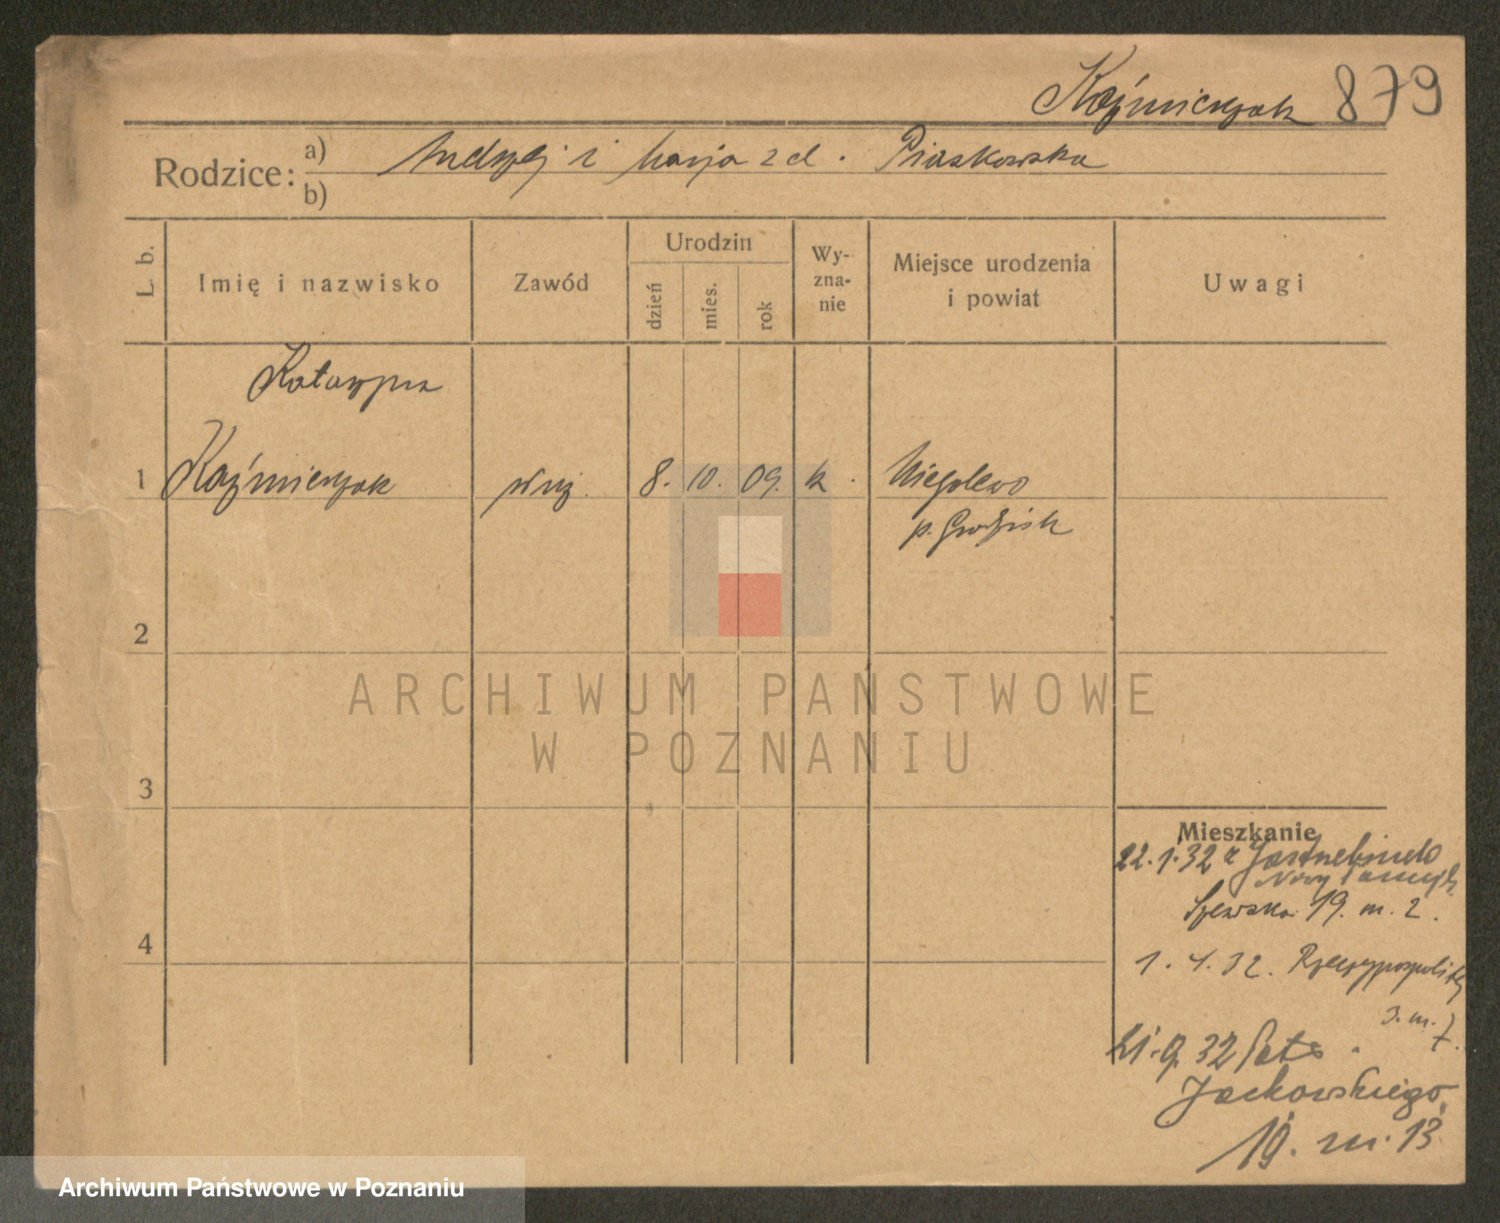 Kaźmierczak 879
Rodzice:
a) Andrzej i Marja z d. Piaskowska
b)
L. b.
Imię i nazwisko
Zawód
Urodzin
dzień
mies.
rok
Wy-
zna-
nie
Miejsce urodzenia
i powiat
Uwagi
Katarzyna
1 Kaźmierczak 8. 10. 09. k. Niegolewo
p. Grodzisk
2
ARCHIWUM PAŃSTWOWE
W POZNANIU
3
Mieszkanie
22.1.32 z
Nowy Tomyśl
Szewska 19. m. 2.
4
1. 4. 32. Rzeczypospolitej
3. m. 7.
21.9.32
Jackowskiego
19. m. 13
Archiwum Państwowe w Poznaniu